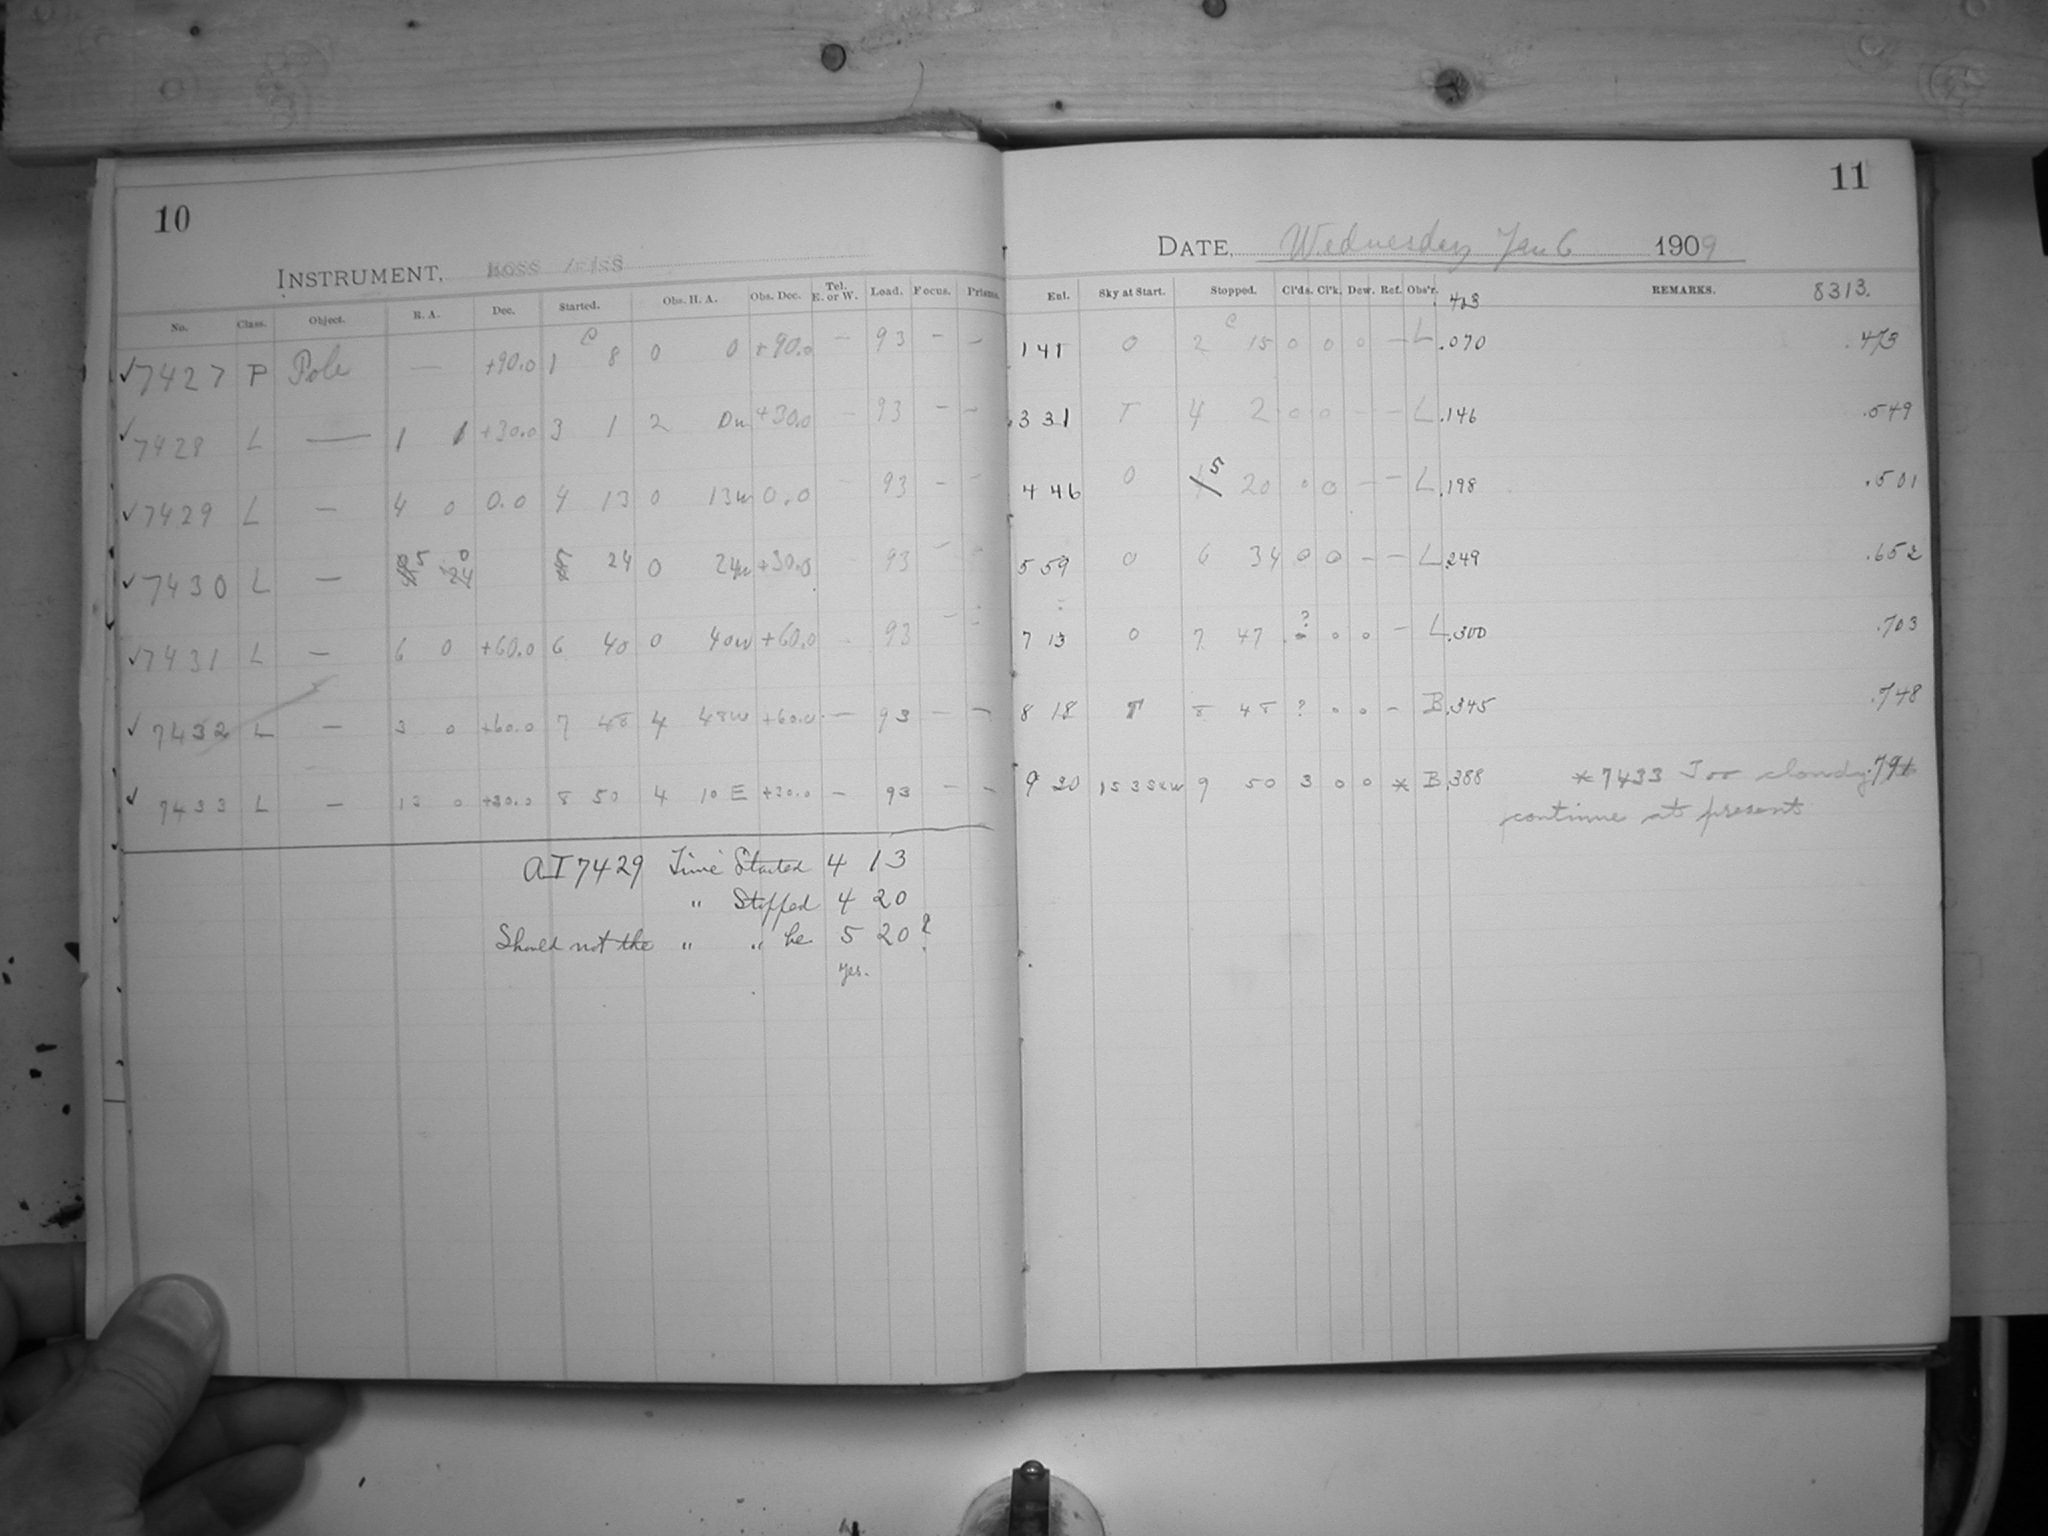 10
INSTRUMENT,
No. Class. Object. R. A. Dec. Started. Obs. H. A. Obs. Dec. Tel. E. or W. Load. Focus. Prisms.
✓7427 P Pole — +90.0 1 8 0 0 +90.0 — 93 — —
✓7428 L — 1 1 +30.0 3 1 2 0w +30.0 — 93 — —
✓7429 L — 4 0 0.0 4 13 0 13w 0.0 93 — —
✓7430 L — 5 0 24 5 24 0 24w +30.0 93 — —
✓7431 L — 6 0 +60.0 6 40 0 40w +60.0 93 —
✓7432 L — 3 0 +60.0 7 48 4 48w +60.0 — 93 — —
✓7433 L — 13 0 +30.0 8 50 4 10 E +30.0 — 93 — —
AI 7429 Time Started 4 13
" Stopped 4 20
Should not the " " be 5 20?
Yes.
11
DATE, Wednesday Jan 6 1909
Ent. Sky at Start. Stopped. Cl'ds. Cl'k. Dew. Ref. Obs'r. REMARKS. 8313.
403
1 41 0 2 15 0 0 0 — L .070 .473
3 31 T 4 2 0 0 — — L .146 .549
4 46 0 5 20 0 0 — — L .198 .501
5 59 0 6 34 0 0 — — L .249 .652
7 13 0 7 47 ? 0 0 — L .300 .703
8 18 T 8 48 ? 0 0 — B .345 .748
9 20 9 50 3 0 0 * B .388 *7433 Too cloudy .791 to
continue at present